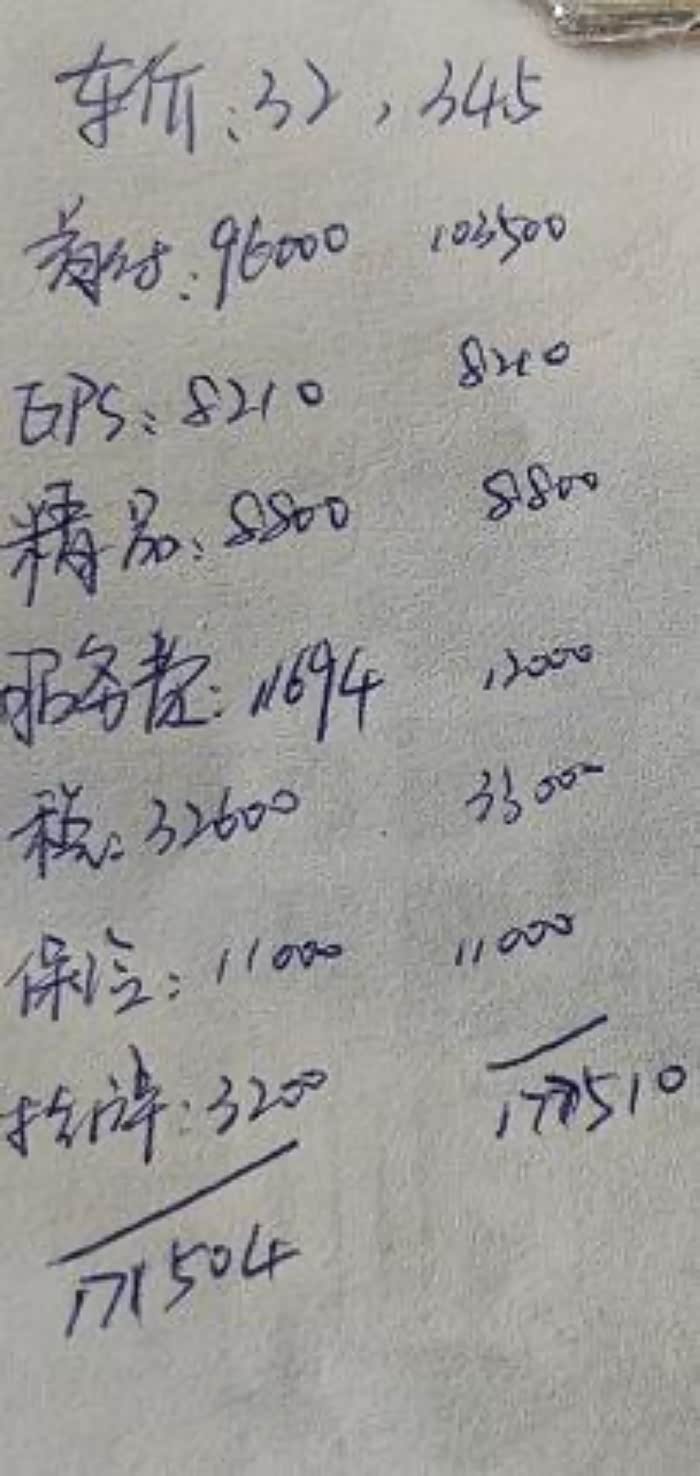 车价:32,345
首付:96000 103500
GPS:8210 8210
精品:8800 8800
服务费:11694 12000
税:32600 33000
保险:11000 11000
抬牌:3200
177510
171504